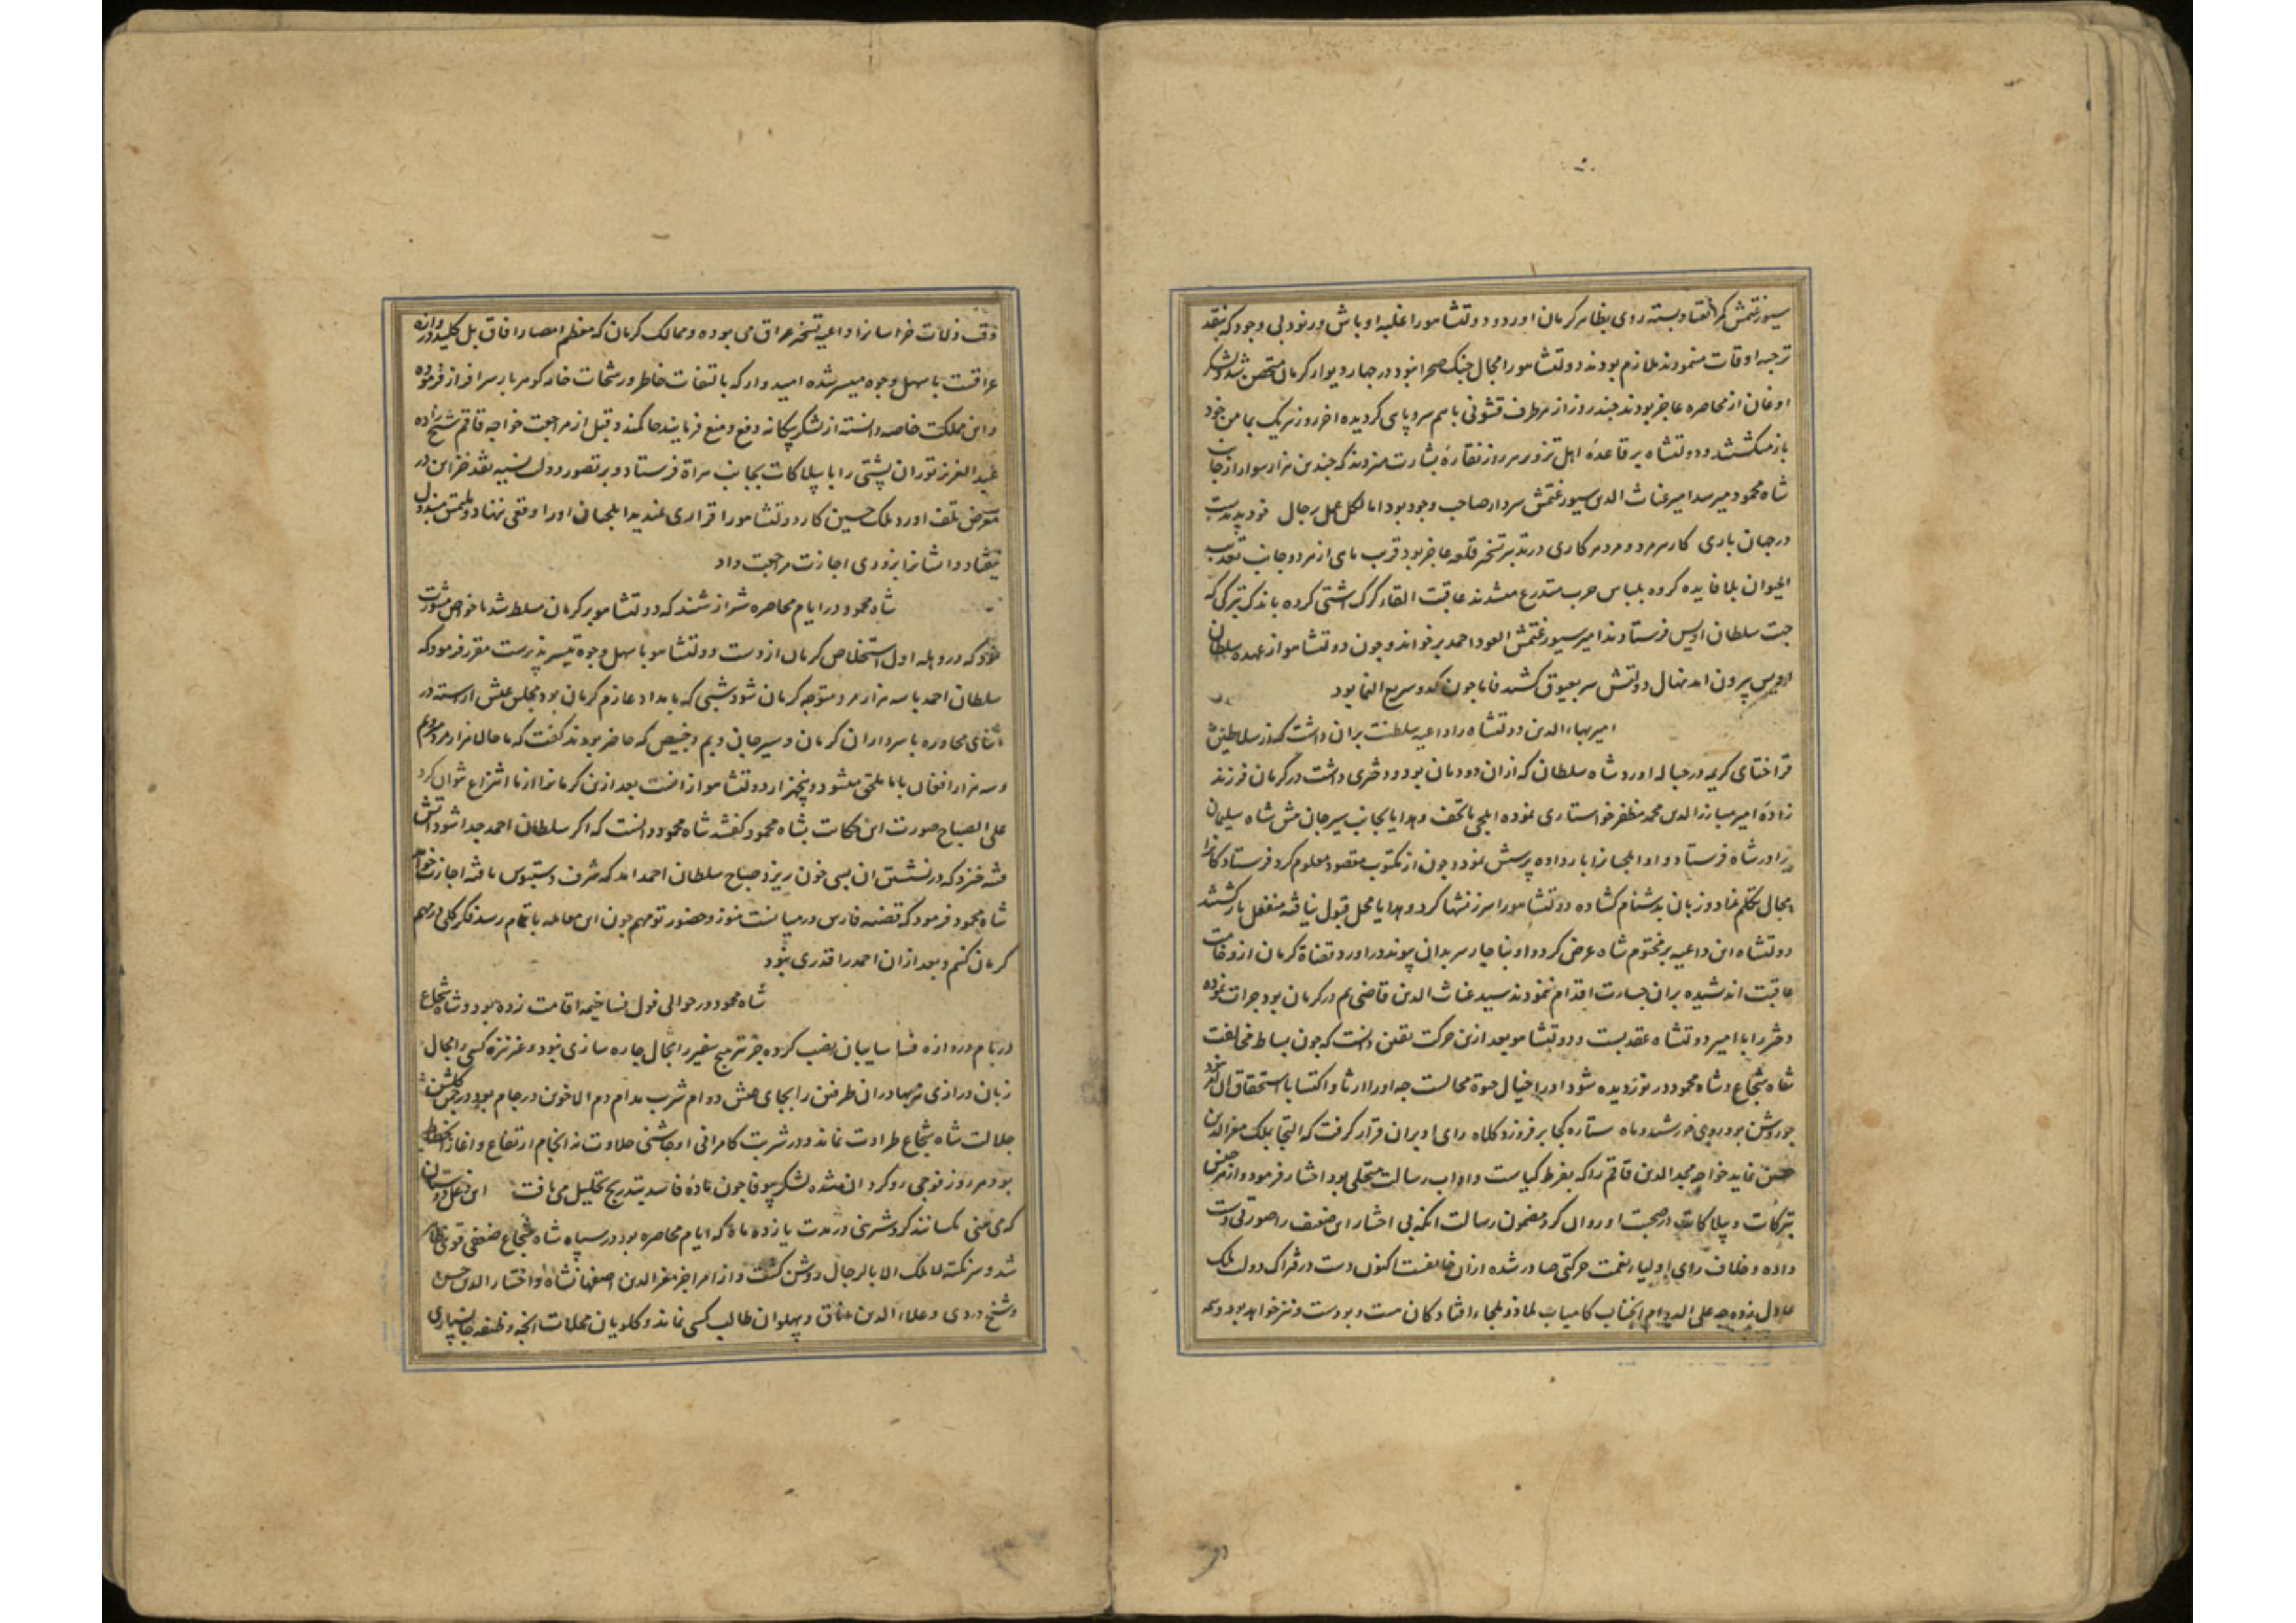 سیورغتمش کمر انقیاد بسته روی بظاهر کرمان اورد و دولتشاه را غلبه اوباش و رنود بی وجود که بنقد
ترجیه اوقات مینمودند ملازم بودند دولتشاه را مجال جنک صحرا نبود در چهار دیوار کرمان متحصن شد لشکر
اوغان از محاصره عاجز بودند چند روز از هر طرف قشونی باهم سر و پای کردیده اخر روز هریک بمامن خود
باز میکشتند و دولتشاه بر قاعدهٔ اهل تزویر هر روز نقارهٔ بشارت میزدند که چندین هزار سوار از جانب
شاه محمود میرسد امیر غیاث الدین سیورغتمش سردار صاحب وجود بود اما لکل عمل رجال
در جهان باری کار هر مرد و مرد هر کاری در تدبیر تسخیر قلعه عاجز بود قرب ماهی از هر دو جانب تعذیب
الحیوان بلا فایده کرده بلباس حرب متدرع میشدند عاقبت القاء کرک اشتی کرده باندک تبرکی که
جهت سلطان اویس فرستادند امیر سیورغتمش العود احمد برخواند و چون دولتشاه از عهده سلطان
اویس بیرون امد نهال دولتش سر بعیوق کشید فاما چون کدو سریع النما بود
امیر بهاءالدین دولتشاه را داعیه سلطنت بران داشت که از سلاطین
قراختای کریمه در حباله اورد شاه سلطان که ازان دودمان بود و دختری داشت در کرمان فرزند
زادهٔ امیر مبارزالدین محمد مظفر خواستاری نموده ایلچی با تحف و هدایا بجانب سیرجان پیش شاه سلیمان
برادر شاه فرستاد و او ایلچیانرا بار داده پرسش نمود و چون از مکتوب مقصود معلوم کرد فرستادکانرا
مجال تکلم نداد و زبان بدشنام کشاده دولتشاه را سرزنشها کرد و هدایا محل قبول نیافته منفعل بازکشتند
دولتشاه این داعیه بر مختوم شاه عرض کرد و او بناچار سر بدان پیوند در اورد و قضاة کرمان از وخامت
عاقبت اندیشیده بران جسارت اقدام ننمودند سید غیاث الدین قاضی بم در کرمان بود جرات نموده
دختر را با امیر دولتشاه عقد بست و دولتشاه بعد ازین حرکت یقین دانست که چون بساط مخالفت
شاه شجاع و شاه محمود در نوردیده شود او را خیال حیوة محالست چه او را ارثا و اکتسابا استحقاق ان نبود
چو روشن بود روی خورشید و ماه ستاره کجا بر فروزد کلاه رای او بران قرار کرفت که التجا بملک معزالدین
حسین نماید خواجه مجدالدین قاقم را که بفرط کیاست و اداب رسالت متحلی بود اختیار فرمود و از هر جنس
تبرکات و بیلاکات در صحبت او روان کرد مضمون رسالت انکه بی اختیار این ضعیف را صورتی دست
داده و خلاف رای اولیاء نعمت حرکتی صادر شده ازان خایفست اکنون دست در فتراک دولت ملک
عادل زده چه علی الدوام انجناب کامیاب ملاذ و ملجاء افتادکان هست و بودست و نیز خواهد بود و همه
وقت ولات خراسانرا داعیه تسخیر عراق می بوده و ممالک کرمان که معظم امصار افاق بل کلید دروازه
عراقست باسهل وجوه میسر شده امیدوار که بالتفات خاطر و رشحات خامه کوهربار سرافراز فرموده
و این مملکت خاصه دانسته از لشکر بیکانه دفع و منع فرمایند حاکمند و قبل از مراجعت خواجه قاقم شیخ زاده
عبدالعزیز توران پشتی را با بیلاکات بجانب هراة فرستاد و بر تصور دولت نسیه نقد خزاین در
معرض تلف اورد ملک حسین کار دولتشاه را قراری ندید ایلچیان او را وقعی ننهاد و ملتمس مبذول
نیفتاد و ایشانرا بزودی اجازت مراجعت داد
شاه محمود در ایام محاصره شیراز شنید که دولتشاه بر کرمان مسلط شد با خواص مشورت
نمود که در وهله اول استخلاص کرمان از دست دولتشاه باسهل وجوه تیسیر پذیرست مقرر فرمود که
سلطان احمد با سه هزار مرد متوجه کرمان شود شبی که بامداد عازم کرمان بود مجلس عیش اراسته در
اثنای محاوره با سرداران کرمان و سیرجان و بم و خبیص که حاضر بودند کفت که ما حالا هزار مردیم
و سه هزار افغان باما ملحق میشود و پنجهزار دولتشاه را است بعد ازین کرمانرا از ما انتزاع نتوان کرد
علی الصباح صورت این حکایت بشاه محمود کفتند شاه محمود دانست که اکر سلطان احمد جدا شود اتش
فتنه خیزد که در نشستن ان بسی خون ریزد صباح سلطان احمد امد که شرف دستبوس یافته اجازت خواهد
شاه محمود فرمود که قضیه فارس درمیانست هنوز و حضور تو مهم چون این معامله باتمام رسد فکر کلی در مهم
کرمان کنیم و بعد ازان احمد را قدری نبود
شاه محمود در حوالی فول فسا خیمه اقامت زده بود و شاه شجاع
در بام دروازه فسا سایبان نصب کرده جز تیر هیچ سفیر را مجال چاره سازی نبود و غیر نیزه کسی را مجال
زبان درازی نی بهادران طرفین را بجای عیش دوام شرب مدام دم الاخوین در جام بود در چمن کلشن
جلالت شاه شجاع طراوت نماند و در شربت کامرانی او چاشنی حلاوت نه انجام ارتفاع و اغاز انحطاط
بود هر روز فوجی روکردان میشدند لشکر بیوفا چون مادهٔ فاسد بتدریج تحلیل می یافت این دغل دوستان
که می بینی مکسانند کرد شیرینی در مدت یازده ماه که ایام محاصره بود در سپاه شاه شجاع ضعفی قوی ظاهر
شد و سر نکته لا ملک الا بالرجال روشن کشت و از امرا جز معزالدین اصفهانشاه و اختیارالدین حسن
و شیخ دردی و علاءالدین اناق و پهلوان طالب کسی نماند و کلویان محلات انچه وظیفه جانسپاری